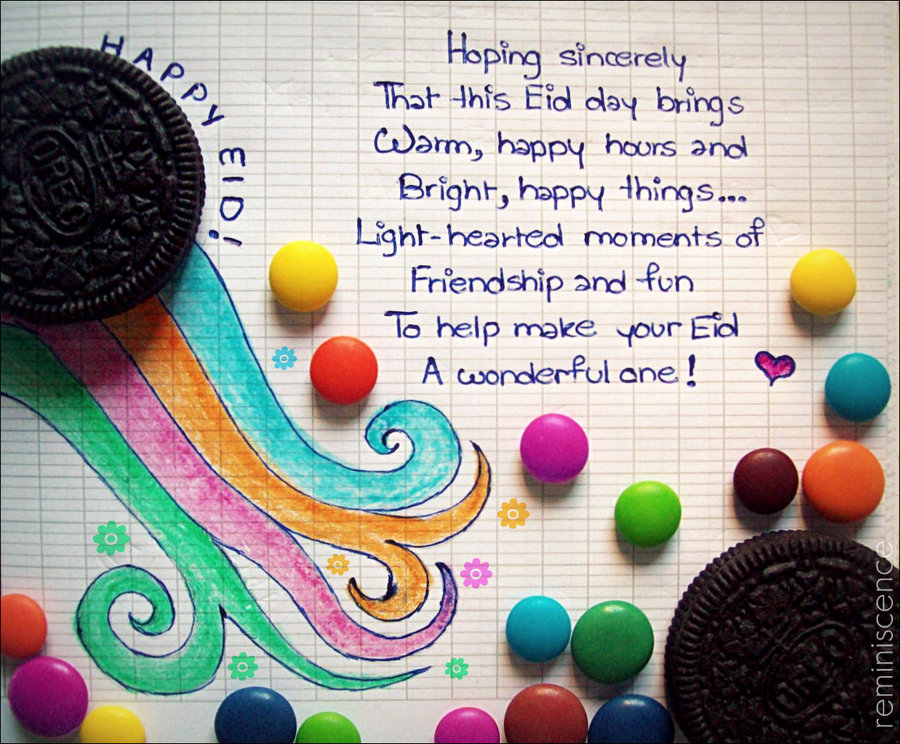 HAPPY EID!
Hoping sincerely
That this Eid day brings
Warm, happy hours and
Bright, happy things...
Light-hearted moments of
Friendship and fun
To help make your Eid
A wonderful one!
OREO
reminiscence